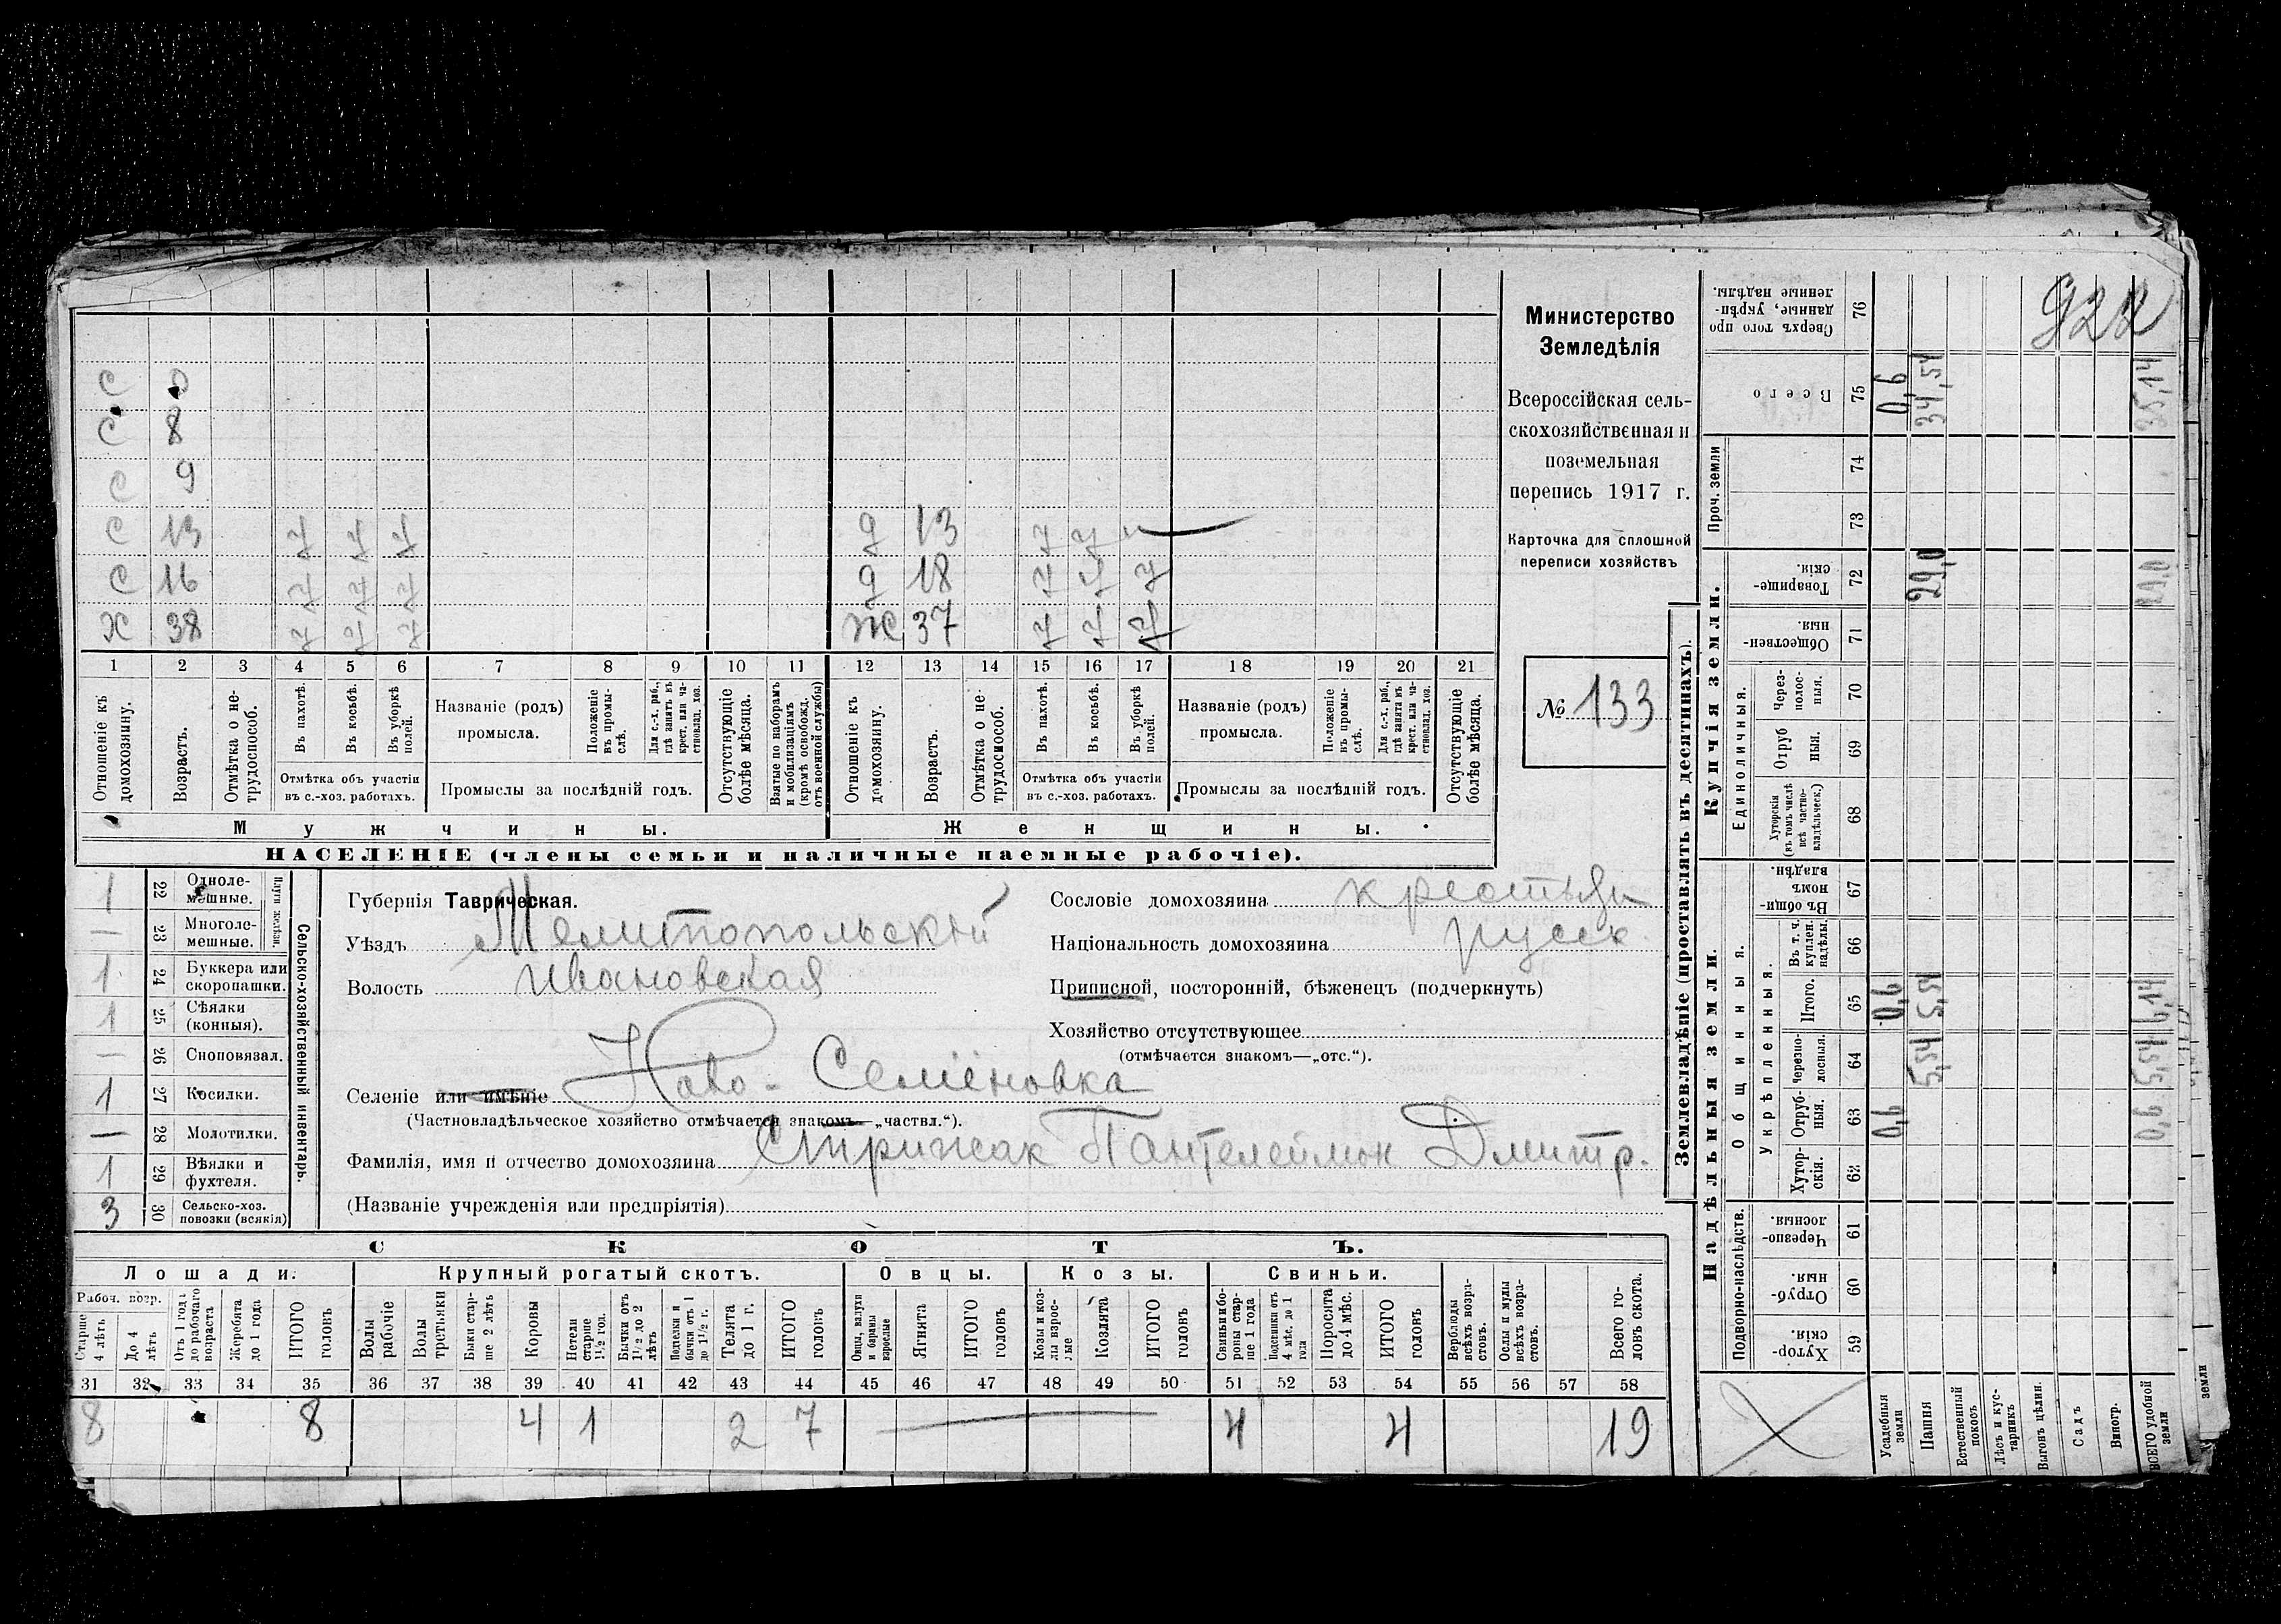 С 0
С 8
С 9
С 13 у у у д 13 у у у
С 16 у у у д 18 у у у
Х 38 у у у ж 37 у у у
1 2 3 4 5 6 7 8 9 10 11 12 13 14 15 16 17 18 19 20 21
Отношеніе къ домохозяину.
Возрастъ.
Отмѣтка о не-трудоспособ.
Въ пахотѣ.
Въ косьбѣ.
Въ уборкѣ полей.
Отмѣтка объ участіи
въ с.-хоз. работахъ.
Названіе (родъ)
промысла.
Положеніе въ промы-слѣ.
Для с.-х. раб., гдѣ занятъ въ крест. или ча-стновлад. хоз.
Промыслы за послѣдній годъ.
Отсутствующіе болѣе мѣсяца.
Взятые по наборамъ и мобилизаціямъ (кромѣ освобожд. отъ военной службы)
Отношеніе къ домохозяину.
Возрастъ.
Отмѣтка о не-трудоспособ.
Въ пахотѣ.
Въ косьбѣ.
Въ уборкѣ полей.
Отмѣтка объ участіи
въ с.-хоз. работахъ.
Названіе (родъ)
промысла.
Положеніе въ промы-слѣ.
Для с.-х. раб., гдѣ занята въ крест. или ча-стновлад. хоз.
Промыслы за послѣдній годъ.
Отсутствующіе болѣе мѣсяца.
Мужчины. Женщины.
НАСЕЛЕНІЕ (члены семьи и наличные наемные рабочіе).
Министерство
Земледѣлія
Всероссійская сель-
скохозяйственная и
поземельная
перепись 1917 г.
Карточка для сплошной
переписи хозяйствъ
№ 133
1 22 Одноле-мешные.
— 23 Многоле-мешные.
Плуги желѣзн.
1 24 Буккера или скоропашки.
1 25 Сѣялки (конныя).
— 26 Сноповязал.
1 27 Косилки.
— 28 Молотилки.
1 29 Вѣялки и фухтеля.
3 30 Сельско-хоз. повозки (всякія)
Сельско-хозяйственный инвентарь.
Губернія Таврическая.
Уѣздъ Мелитопольскій
Волость Ивановская
Селеніе или имѣніе Ново-Семёновка
(Частновладѣльческое хозяйство отмѣчается знакомъ—„частвл.“).
Фамилія, имя и отчество домохозяина Стрижак Пантелеймон Дмитр.
(Названіе учрежденія или предпріятія)
Сословіе домохозяина крестьян
Національность домохозяина русск
Приписной, посторонній, бѣженецъ (подчеркнуть)
Хозяйство отсутствующее
(отмѣчается знакомъ—„отс.“).
СКОТЪ.
Лошади. Крупный рогатый скотъ. Овцы. Козы. Свиньи.
Рабоч. возр.
Старше 4 лѣтъ
До 4 лѣтъ
Отъ 1 года до рабочаго возраста
Жеребята до 1 года
ИТОГО головъ
Волы рабочіе
Волы третьяки
Быки стар-ше 2 лѣтъ
Коровы
Нетели старше 1½ год.
Бычки отъ 1½ до 2 лѣтъ
Подтелки и бычки отъ 1 до 1½ г.
Телята до 1 г.
ИТОГО головъ
Овцы, валухи и бараны взрослые
Ягнята
ИТОГО головъ
Козы и коз-лы взрос-лые
Козлята
ИТОГО головъ
Свиньи и бо-ровы стар-ше 1 года
Подсвинки отъ 4 мѣс. до 1 года
Поросята до 4 мѣс.
ИТОГО головъ
Верблюды всѣхъ возра-стовъ.
Ослы и мулы всѣхъ возра-стовъ.
Всего го-ловъ скота.
31 32 33 34 35 36 37 38 39 40 41 42 43 44 45 46 47 48 49 50 51 52 53 54 55 56 57 58
8 8 4 1 2 7 — 4 4 19
Землевладѣніе (проставлять въ десятинахъ).
Надѣльныя земли. Купчія земли. Проч. земли
Подворно-наслѣдств. Общинныя. Укрѣпленныя. Единоличныя.
Хутор-скія. 59
Отруб-ныя. 60
Черезпо-лосныя. 61
Хутор-скія. 62
Отруб-ныя. 63
Черезпо-лосныя. 64
Итого. 65
Въ т. ч. куплен. надѣлы. 66
Въ общи-номъ владѣн. 67
Хуторскія (въ томъ числѣ всѣ частно-владѣльческ.) 68
Отруб ныя. 69
Через-полос-ныя. 70
Обществен-ныя. 71
Товарище-скія. 72
73
74
Всего 75
Сверхъ того про данные, укрѣп-ленные надѣлы. 76
922
Усадебныя земли 0,6 0,6 0,6
Пашня 5,54 5,54 29,0 34,54
Естественный покосъ
Лѣсъ и кус-тарникъ
Выгонъ цѣлин.
Садъ
Виногр.
ВСЕГО удобной земли 0,6 5,54 6,14 29,0 35,14
земли